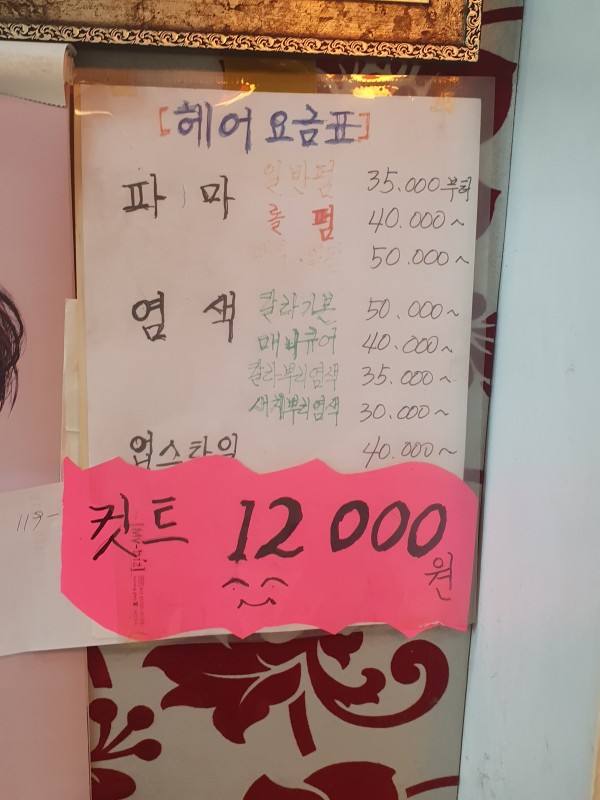 [헤어요금표]
파 마 일반펌 35.000부터
롤 펌 40.000~
50.000~
염 색 칼라기본 50.000~
매니큐어 40.000~
칼라뿌리염색 35.000~
새치뿌리염색 30.000~
업스타일 40.000~
컷트 12000원
119-